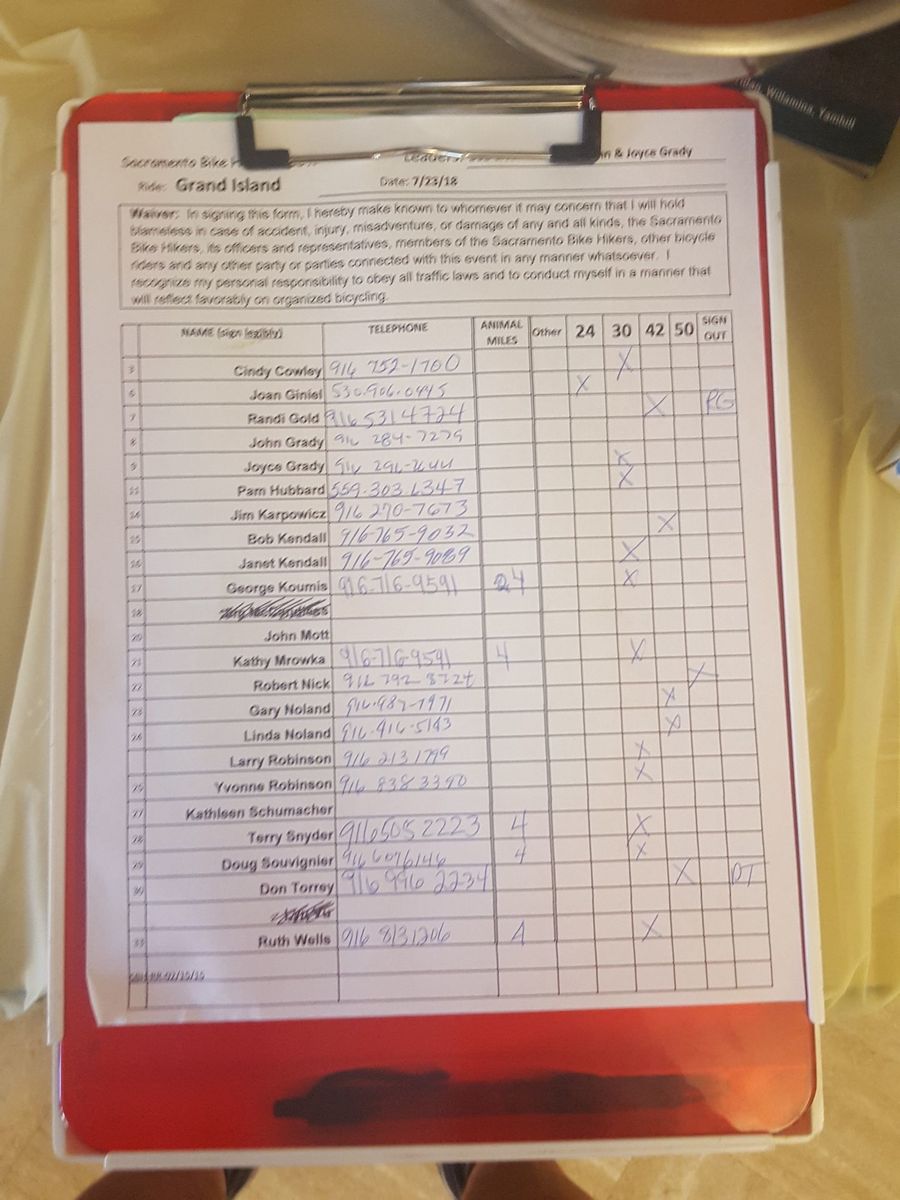 tilan, Willamina, Yamhill
Sacramento Bike Leaders: n & Joyce Grady
Ride: Grand Island Date: 7/23/18
Waiver: In signing this form, I hereby make known to whomever it may concern that I will hold
blameless in case of accident, injury, misadventure, or damage of any and all kinds, the Sacramento
Bike Hikers, its officers and representatives, members of the Sacramento Bike Hikers, other bicycle
riders and any other party or parties connected with this event in any manner whatsoever. I
recognize my personal responsibility to obey all traffic laws and to conduct myself in a manner that
will reflect favorably on organized bicycling.
NAME (sign legibly) TELEPHONE ANIMAL MILES Other 24 30 42 50 SIGN OUT
Cindy Cowley 916 752-1700 X
6 Joan Giniel 530.906.0445 X
7 Randi Gold 916 531 4724 X RG
8 John Grady 916 284-7279
9 Joyce Grady 916 296-2644 X
Pam Hubbard 559.303.6347 X
14 Jim Karpowicz 916 270-7673
15 Bob Kendall 916-765-9032 X
16 Janet Kendall 916-765-9089 X
17 George Koumis 916-716-9591 4 X
18
20 John Mott
21 Kathy Mrowka 916-716-9591 4 X
22 Robert Nick 916 792 X
23 Gary Noland 916-987-7971 X
24 Linda Noland 916-416-5143 X
Larry Robinson 916 213 1799 X
25 Yvonne Robinson 916 838 3390 X
27 Kathleen Schumacher
28 Terry Snyder 916 505 2223 4 X
29 Doug Souvignier 916 6076146 4 X
30 Don Torrey 916 996 2234 X DT
33 Ruth Wells 916 813 1206 4 X